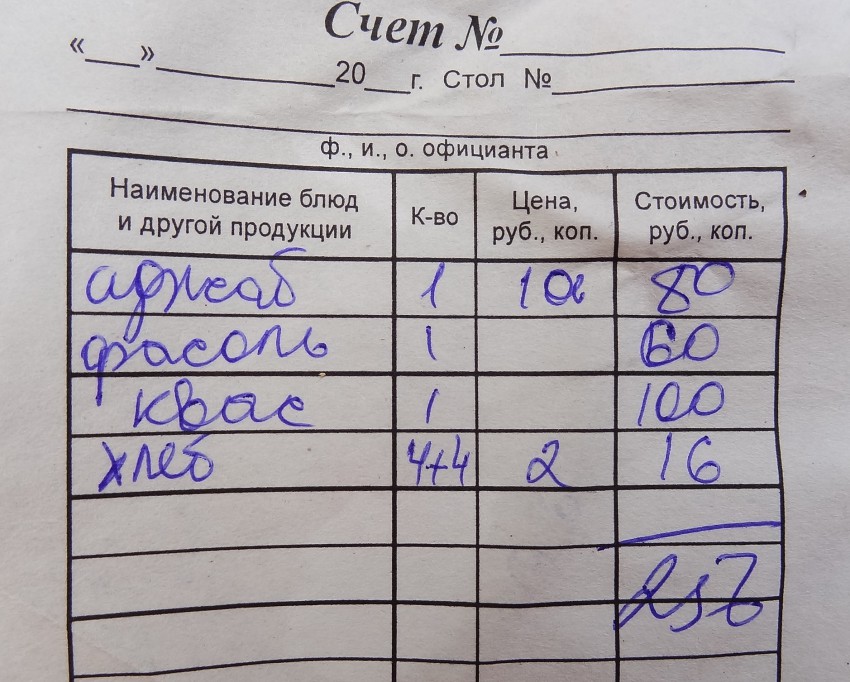 Счет №
« » 20 г. Стол №
ф., и., о. официанта
Наименование блюд и другой продукции К-во Цена, руб., коп. Стоимость, руб., коп.
аджаб 1 80
фасоль 1 60
квас 1 100
хлеб 4+4 2 16
256